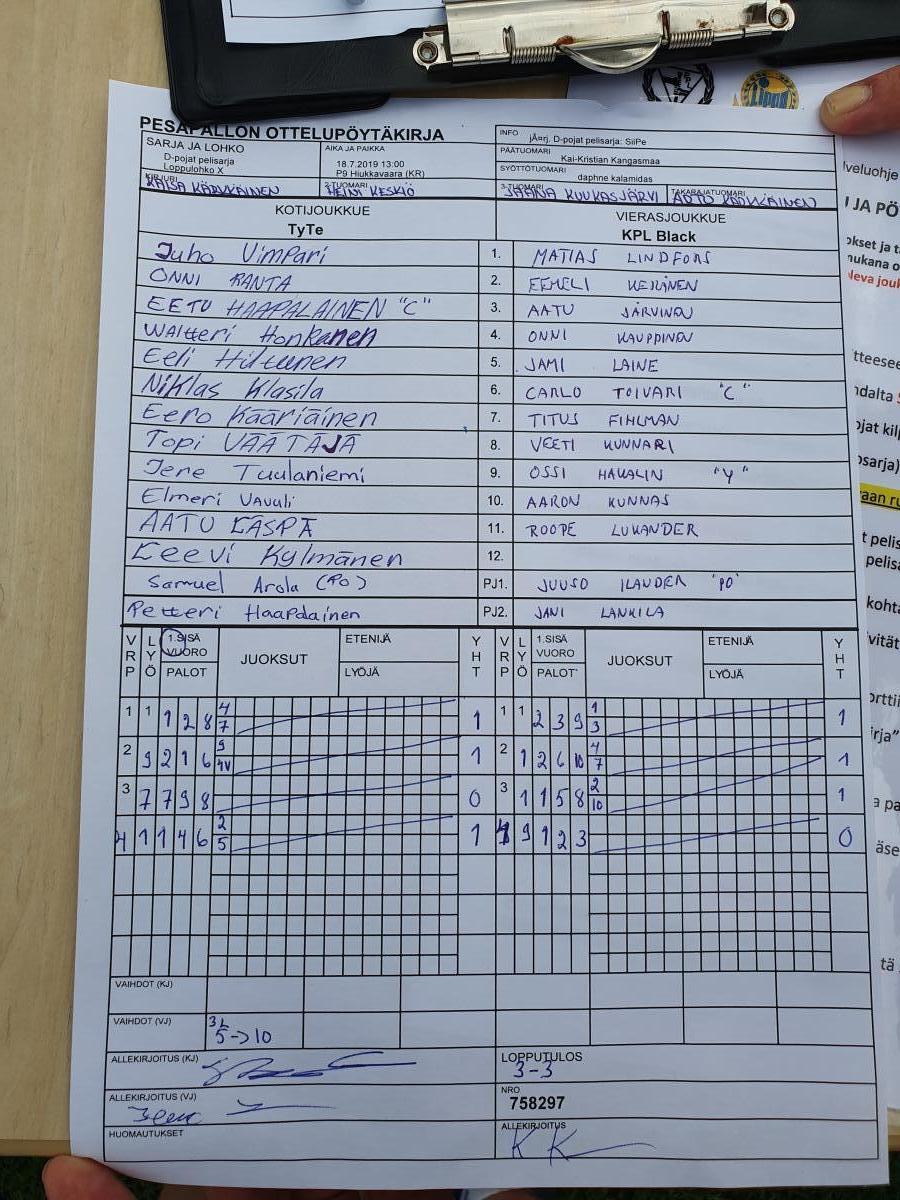 PESÄPALLON OTTELUPÖYTÄKIRJA
SARJA JA LOHKO
D-pojat pelisarja
Loppulohko X
AIKA JA PAIKKA
18.7.2019 13:00
P9 Hiukkavaara (KR)
INFO
jÃ¤rj. D-pojat pelisarja: SiiPe
PÄÄTUOMARI
Kai-Kristian Kangasmaa
SYÖTTÖTUOMARI
daphne kalamidas
KIRJURI
KAISA KÄRKKÄINEN
2-TUOMARI
HEINI KESKIÖ
3-TUOMARI
JAANA KUUKASJÄRVI
TAKARAJATUOMARI
KOTIJOUKKUE
TyTe
VIERASJOUKKUE
KPL Black
Juho Vimpari 1. MATIAS LINDFORS
ONNI RANTA 2. EEMELI KEINÄNEN
EETU HAAPALAINEN "C" 3. AATU JÄRVINEN
WALtteri Honkanen 4. ONNI KAUPPINEN
Eeli Hiltunen 5. JAMI LAINE
Niklas Klasila 6. CARLO TOIVARI "C"
Eero Kääriäinen 7. TITUS FIHLMAN
Topi VÄÄTÄJÄ 8. VEETI KUNNARI
Jere Tuulaniemi 9. OSSI HAKALIN "V"
Elmeri 10. AARON KUNNAS
AATU 11. ROOPE LUKANDER
Eeevi Kylmänen 12.
Samuel Arola (PO) PJ1. JUUSO ILANDER "PO"
Petteri Haapalainen PJ2. JANI LANKILA
VRP LYÖ 1.SISÄ VUORO PALOT JUOKSUT ETENIJÄ LYÖJÄ YHT VRP LYÖ 1.SISÄ VUORO PALOT JUOKSUT ETENIJÄ LYÖJÄ YHT
1 1 1 2 8 4 7 1 1 1 2 3 9 1 3 1
2 9 2 1 6 9 4V 1 2 1 2 6 10 4 7 1
3 7 7 9 8 0 3 1 1 5 8 2 10 1
4 1 1 4 6 2 5 1 4 9 1 2 3 0
VAIHDOT (KJ)
VAIHDOT (VJ) 3L 5->10
ALLEKIRJOITUS (KJ)
LOPPUTULOS
3-3
ALLEKIRJOITUS (VJ)
NRO
758297
HUOMAUTUKSET
ALLEKIRJOITUS
K K